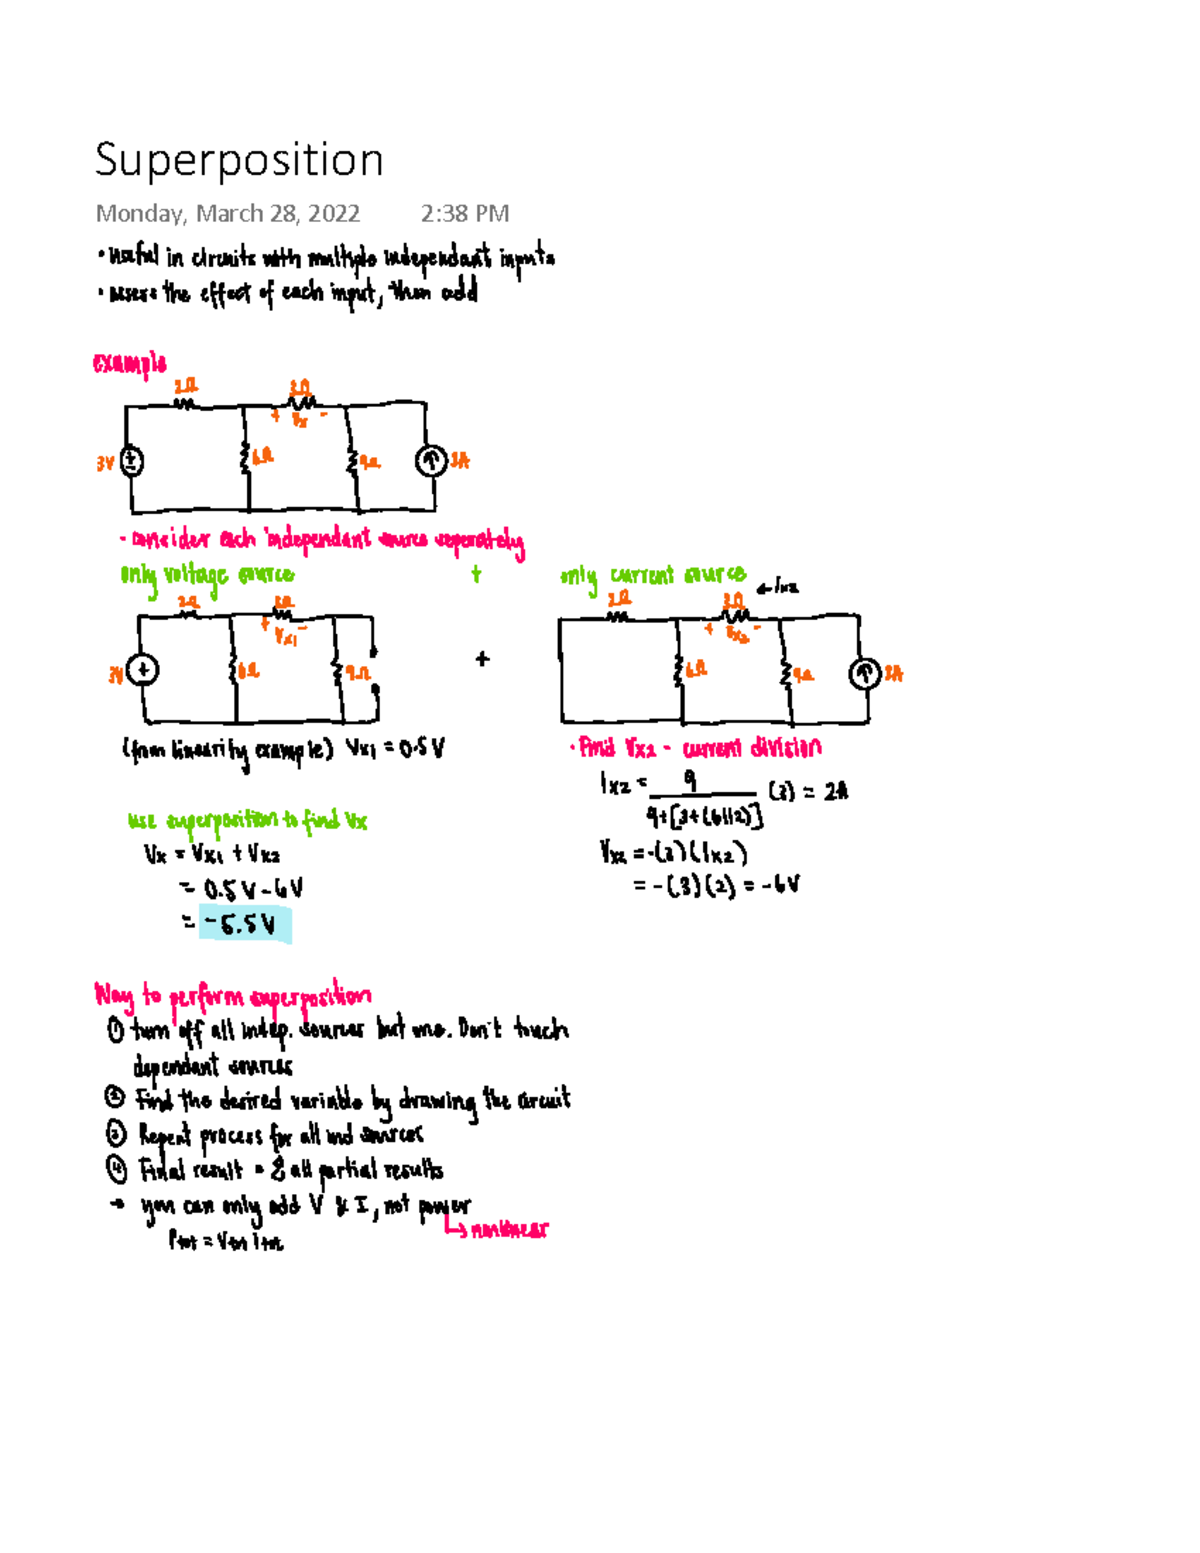 Superposition
Monday, March 28, 2022 2:38 PM
• useful in circuits with multiple independant inputs
• assess the effect of each input, then add
example
2Ω 3Ω
+ Vx -
3V 6Ω 9Ω 3A
• consider each independant source seperately
only voltage source + only current source
← Ix2
2Ω 3Ω 2Ω 3Ω
+ Vx1 - + Vx2 -
3V + 6Ω 9Ω + 6Ω 9Ω 3A
(from linearity example) Vx1 = 0.5V
• Find Vx2 - current division
Ix2 = 9 / 9+[3+(6||2)] (3) = 2A
Vx2 = -(3)(Ix2)
= -(3)(2) = -6V
use superposition to find Vx
Vx = Vx1 + Vx2
= 0.5V - 6V
= -5.5V
Way to perform superposition
① turn off all indep. sources but one. Don't touch
dependant sources
② Find the desired variable by drawing the circuit
③ Repeat process for all ind sources
④ Final result = Σ all partial results
→ you can only add V & I, not power
↳ nonlinear
Ptot = Vtot Itot